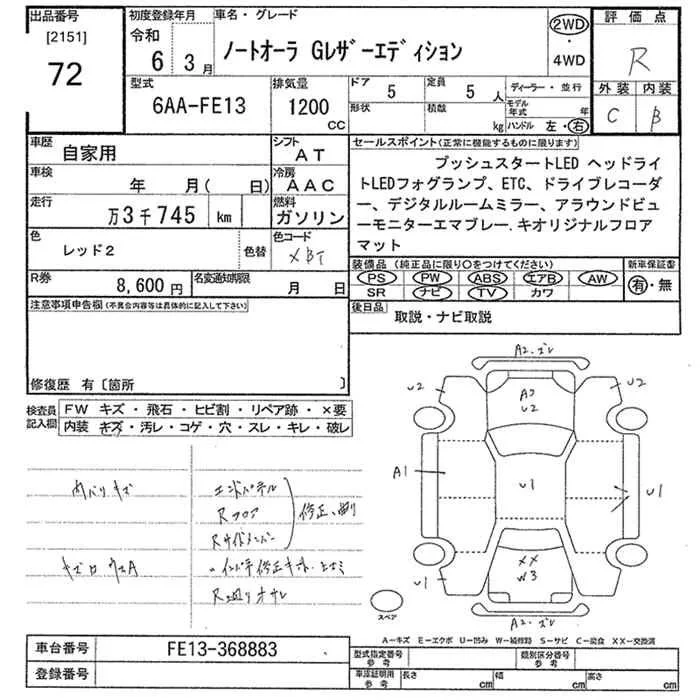 出品番号
[2151]
72
初度登録年月
令和
6 3月
車名・グレード
ノートオーラ Gレザーエディション
2WD
・
4WD
評価点
R
外装 内装
C B
型式
6AA-FE13
排気量
1200
CC
ドア 5
定員 5 人
形状
積載 kg
ディーラー・並行
モデル年式 年
ハンドル 左・右
車歴 自家用
シフト AT
車検 年 月( 日)
冷房 AAC
走行 万3千745 km
燃料 ガソリン
色 レッド2 色替
色コード XBT
R券 8,600円
名変通知期限 月 日
セールスポイント(正常に機能するものに限ります)
プッシュスタートLED ヘッドライ
トLEDフォグランプ、ETC、ドライブレコーダ
ー、デジタルルームミラー、アラウンドビュ
ーモニターエマブレー.キオリジナルフロア
マット
装備品(純正品に限り○をつけてください)
PS PW ABS エアB AW
SR ナビ TV カワ
新車保証書
有・無
後日品 取説・ナビ取説
注意事項申告欄(不具合内容等は具体的に記入して下さい)
修復歴 有〔箇所 〕
検査員
記入欄
FW キズ・飛石・ヒビ割・リペア跡・×要
内装 キズ・汚レ・コゲ・穴・スレ・キレ・破レ
内バリキズ
エンドパネル
Rフロア
Rサイドメンバー
修正、曲り
キズロウスA
A2.ズレ
U2
U2
A2
U2
A1
U1
U1
XX
W3
U1
A2.ズレ
スペア
A-キズ E-エクボ U-凹み W-補修跡 S-サビ C-腐食 XX-交換済
車台番号 FE13-368883
登録番号
型式指定番号
参考
類別区分番号
参考
車庫証明用
参考
長さ cm
幅 cm
高さ cm